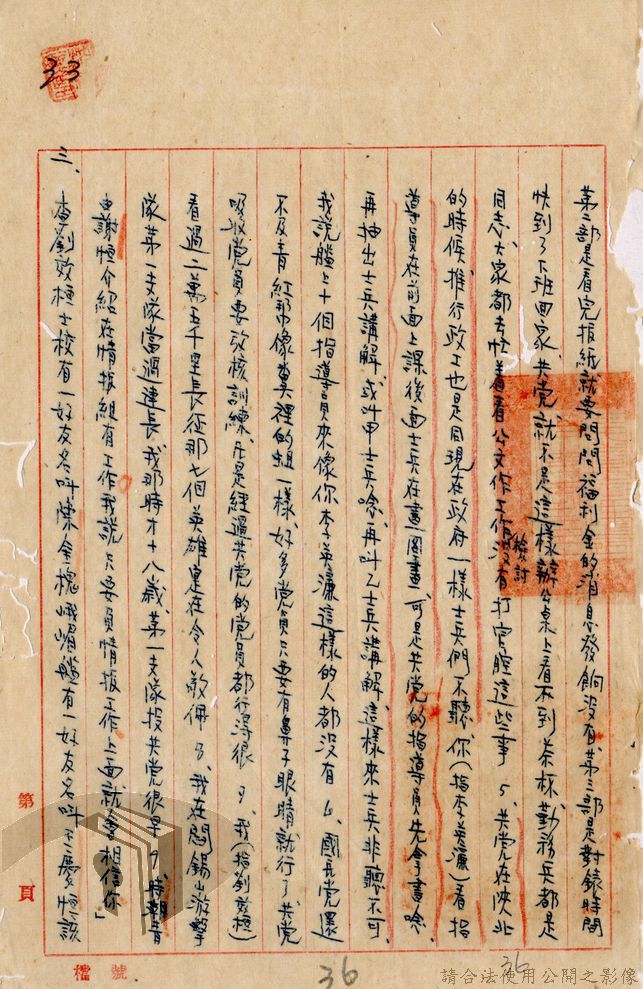 33
第二部是看完报紙就要問問福利金的消息發餉沒有第三部是對錶時間
快到了下班回家、共党就不是這樣辦公桌上看不到茶杯勤務兵都是
同志大家都去忙着看公文作工作檢討沒有打官腔這些事 5、共党在陝北
的時候推行政工也是目現在政府一樣士兵們不聽、你(指李英濂)看指
導員在前面上課後面士兵在畫圖畫、可是共党的指導員先拿書唸、
再抽出士兵講解、或叫甲士兵唸、再叫乙士兵講解、這樣來士兵非聽不可、
我說艦上十個指導員來像你李英濂這樣的人都沒有 6、國民党還
不及青紅帮像糞裡的蛆一樣、好多党員只要有鼻子眼睛就行了共党
吸收党員要攷核訓練、凡是經過共党的党員都行得很 7、我(指劉效極)
看過二萬五千里長征那七個英雄実在令人敬佩 8、我在閻錫山游擊
隊第一支隊當過連長我那時才十八歲、第一支隊投共党很早 9、
由謝恒介紹在情报組有工作我說只要員情报工作上面就會相信你」
三、查劉效極士校有一好友名叫陳金槐峨嵋艦有一好友名叫王慶恒該
第 頁
檔 號
36
36
請合法使用公開之影像